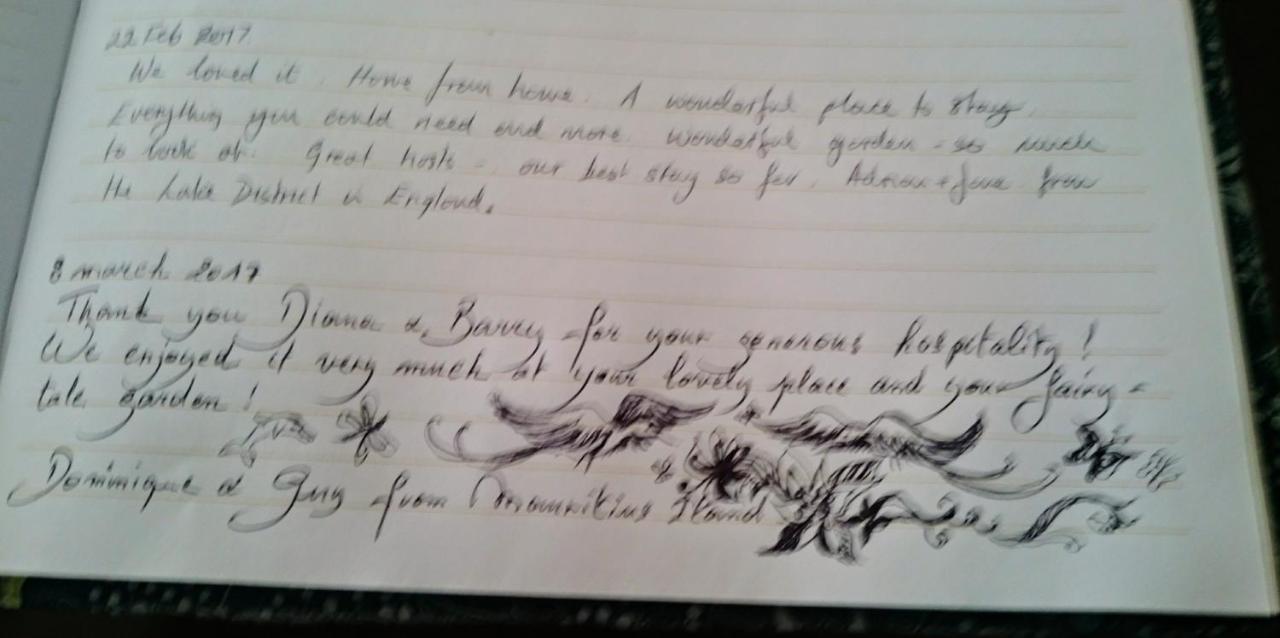 22 Feb 2017
We loved it. Home from home. A wonderful place to stay.
Everything you could need and more. Wonderful garden - so much
to look at. Great hosts - our best stay so far. Adrian + Jane from
the Lake District in England.
8 march 2017
Thank you Diana & Barry for your generous hospitality!
We enjoyed it very much at your lovely place and your fairy-
tale garden!
Dominique & Guy from Mauritius Island